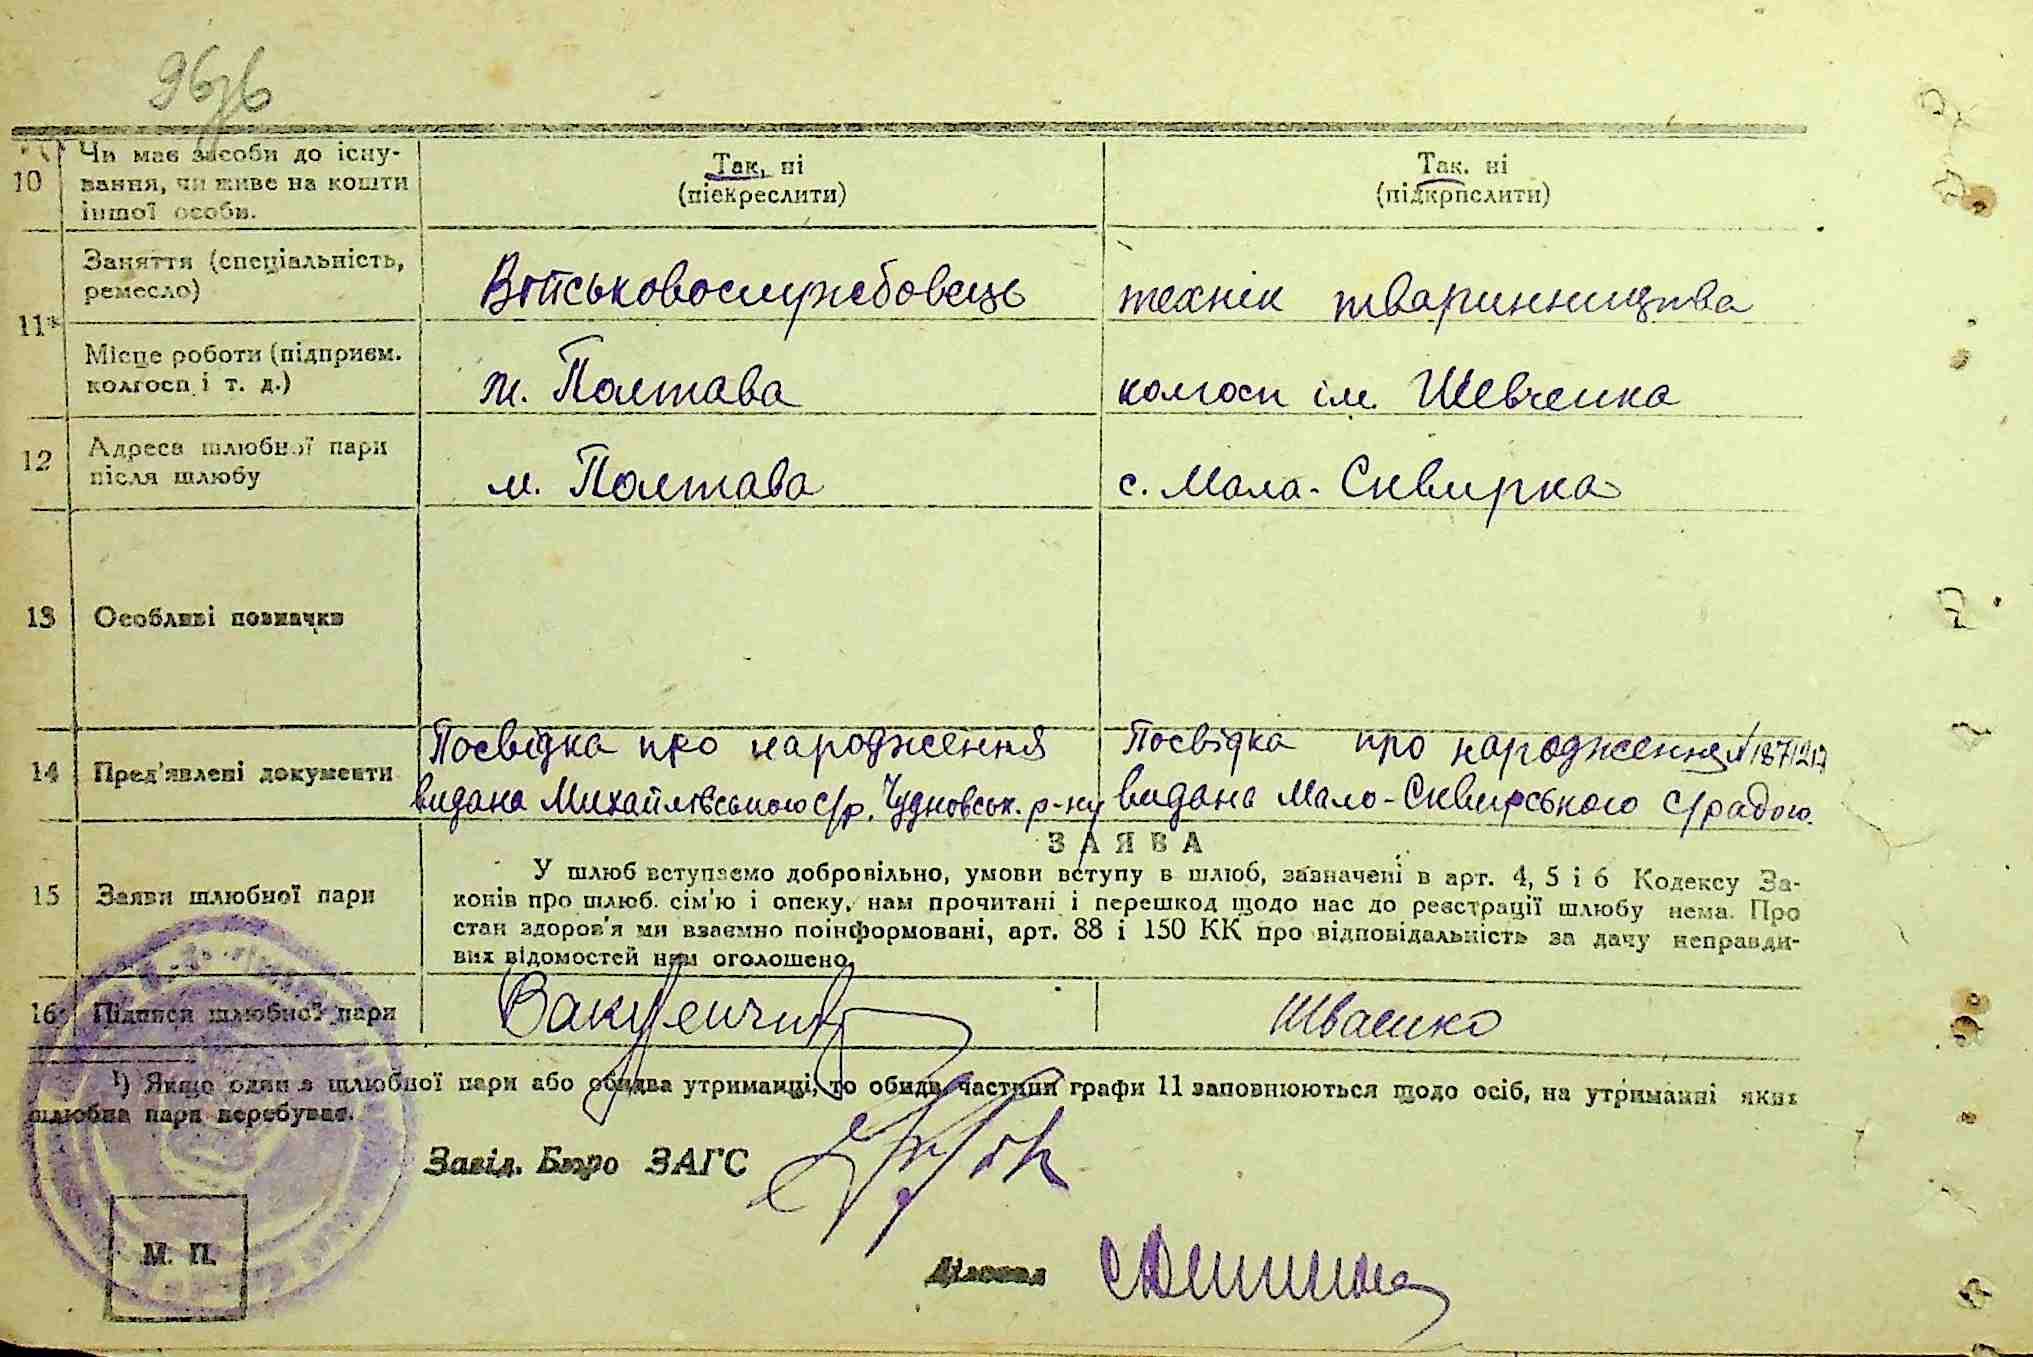 96
10 Чи має засоби до існу-
вання, чи живе на кошти
іншої особи.
Так, ні
(підкреслити)
Так. ні
(підкрпслити)
Заняття (спеціальність,
ремесло)
Військовослужбовець
технік тваринництва
11*
Місце роботи (підприєм.
колгосп і т. д.)
м. Полтава
колгосп ім. Шевченка
12 Адреса шлюбної пари
після шлюбу
м. Полтава
с. Мала-Сквирка
13 Особливі позначки
14 Пред'явлені документи
Посвідка про народження
видана Михайлівською с/р. Чуднівськ. р-ну
Посвідка про народження
видана Мало-Сквирського с/радою.
ЗАЯВА
15 Заяви шлюбної пари
У шлюб вступаємо добровільно, умови вступу в шлюб, зазначені в арт. 4, 5 і 6 Кодексу За-
конів про шлюб. сім'ю і опеку, нам прочитані і перешкод щодо нас до реєстрації шлюбу нема. Про
стан здоров'я ми взаємно поінформовані, арт. 88 і 150 КК про відповідальність за дачу неправди-
вих відомостей нам оголошено.
16 Підписи шлюбної пари
Швасико
¹) Якщо один з шлюбної пари або обидва утриманці, то обидв. частини графи 11 заповнюються щодо осіб, на утриманні яких
шлюбна пара перебуває.
Завід. Бюро ЗАГС
Діловод
М. П.